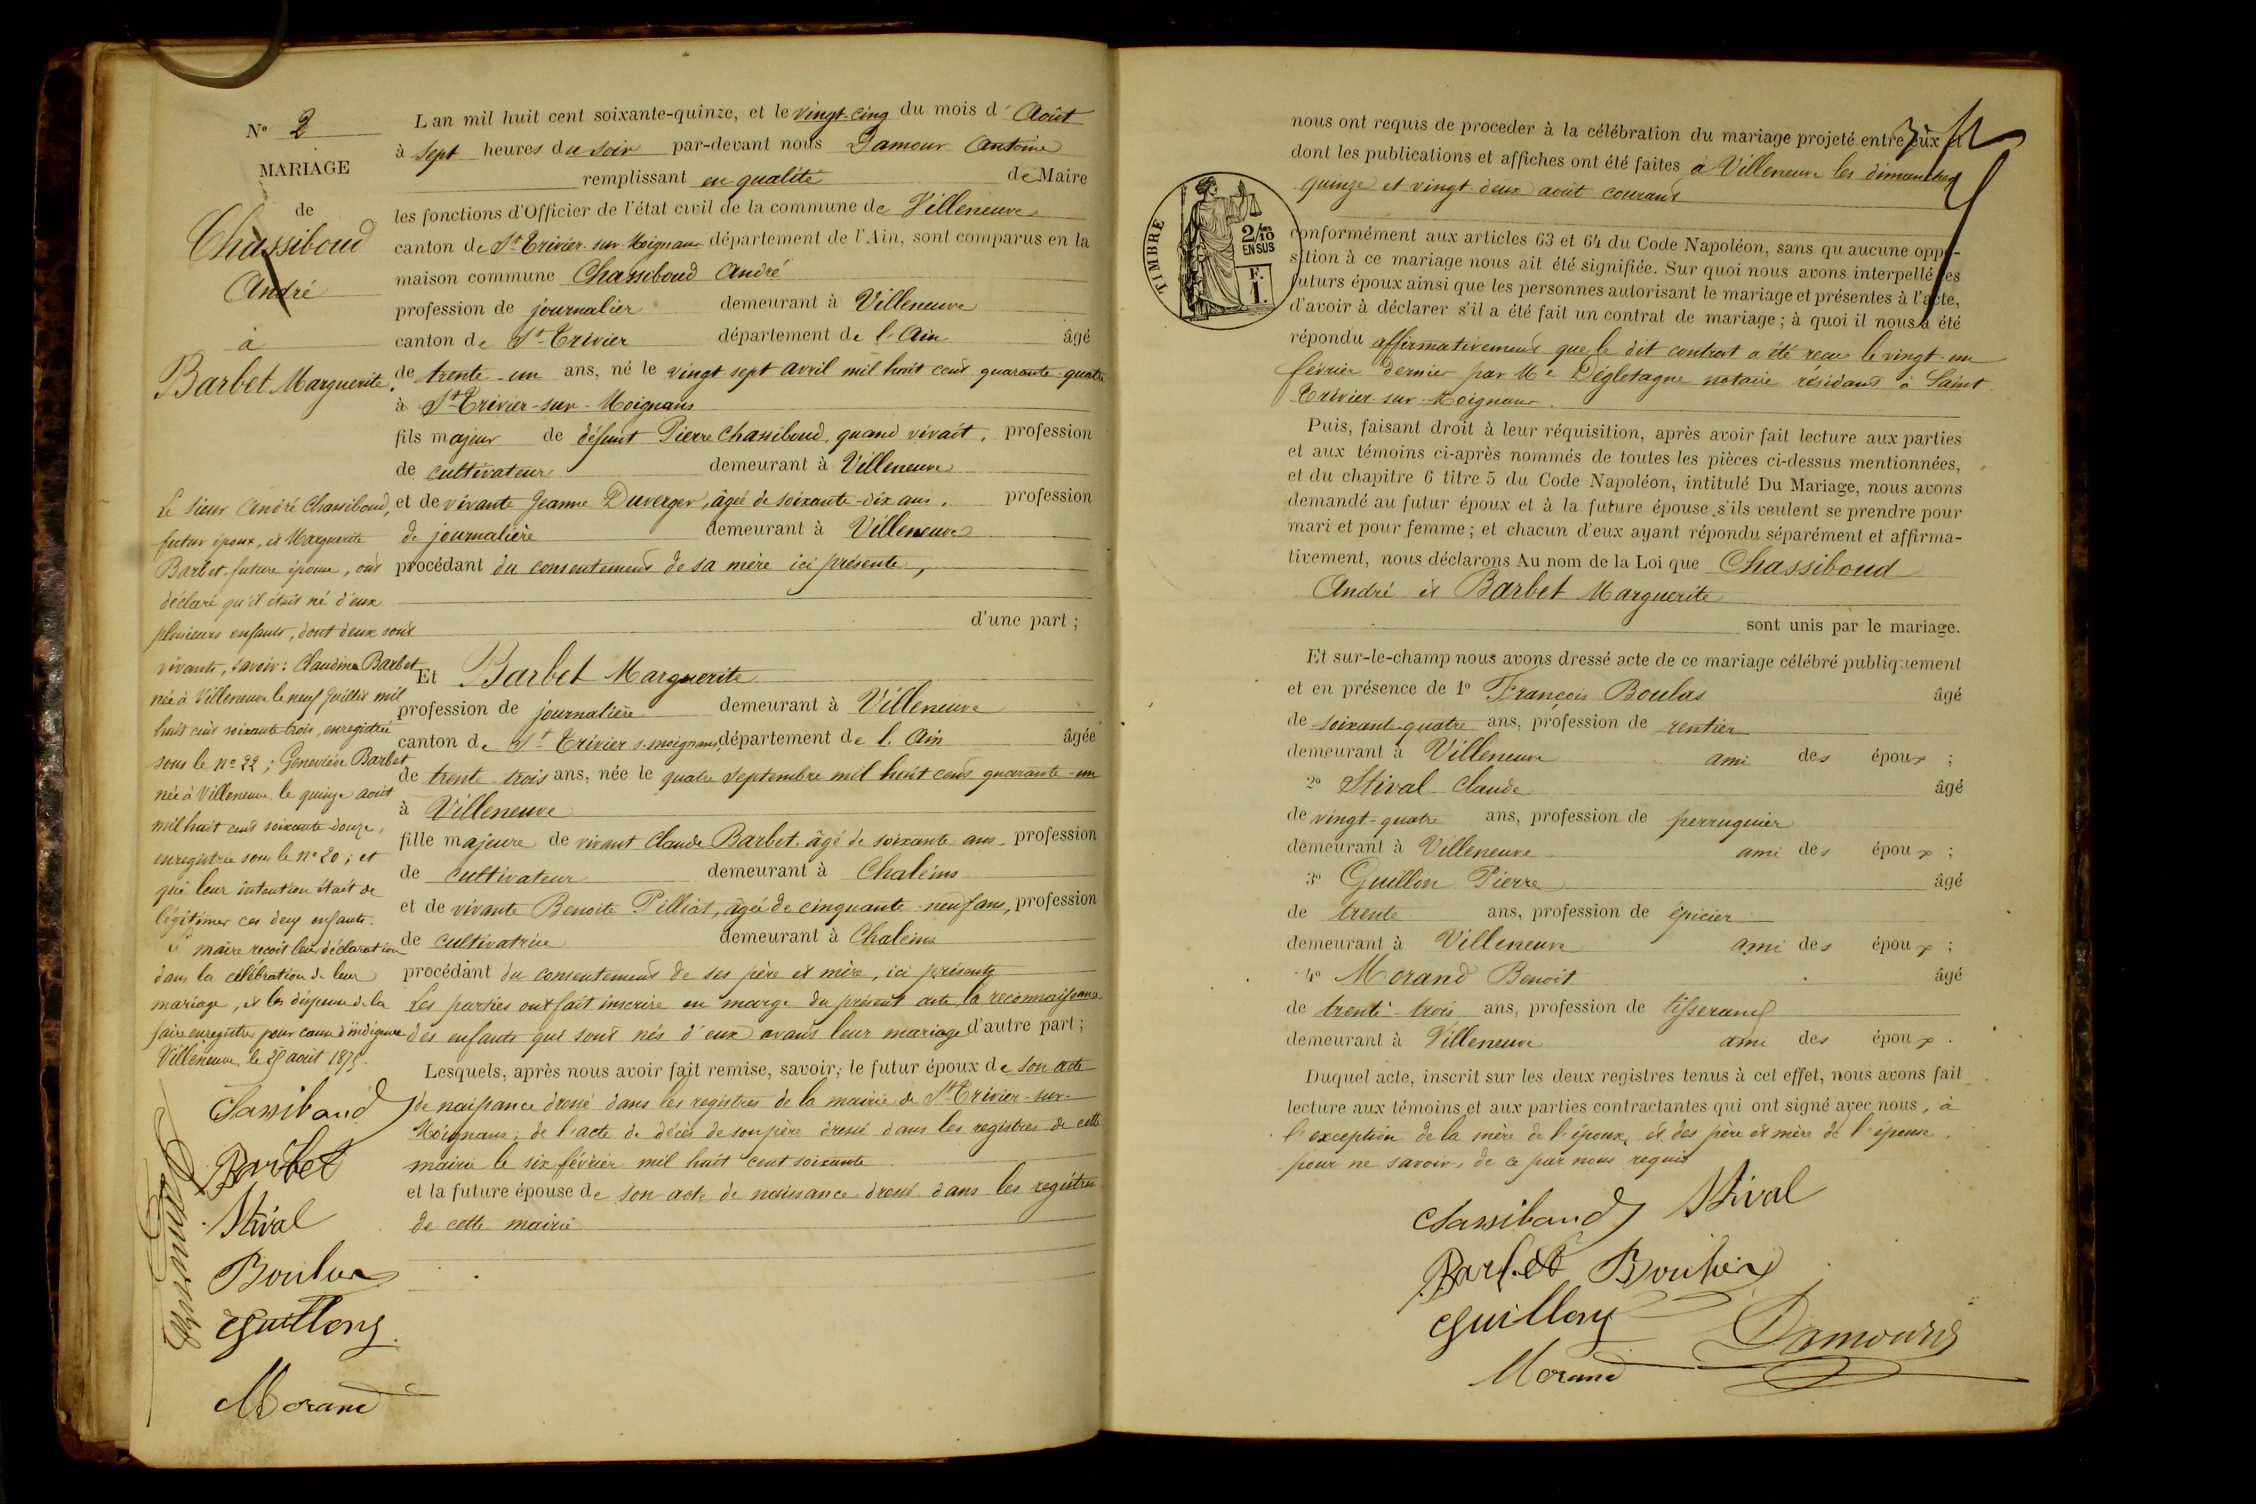 N° 2
MARIAGE
de
Chassiboud
André
à
Barbet Marguerite.
L an mil huit cent soixante-quinze, et le vingt-cinq du mois d' Août
à sept heures du soir par-devant nous Damour Antoine
remplissant en qualité de Maire
les fonctions d'Officier de l'état civil de la commune de Villeneuve
canton de St Trivier-sur-Moignans département de l'Ain, sont comparus en la
maison commune Chassiboud André
profession de journalier demeurant à Villeneuve
canton de St Trivier département de l'Ain âgé
de trente-un ans, né le vingt sept avril mil huit cent quarante-quatre
à St Trivier-sur-Moignans
fils majeur de défunt Pierre Chassiboud, quand vivait, profession
de cultivateur demeurant à Villeneuve
et de vivante Jeanne Duverger, âgée de soixante-dix ans, profession
de journalière demeurant à Villeneuve
procédant du consentement de sa mère ici présente,
d'une part ;
Et Barbet Marguerite
profession de journalière demeurant à Villeneuve
canton de St Trivier s. moignans, département de l'Ain âgée
de trente-trois ans, née le quatre septembre mil huit cent quarante-un
à Villeneuve
fille majeure de vivant Claude Barbet âgé de soixante ans, profession
de cultivateur demeurant à Chaleins
et de vivante Benoite Pilliat, âgée de cinquante-neuf ans, profession
de cultivatrice demeurant à Chaleins
procédant du consentement de ses père et mère, ici présents
Les parties ont fait inscrire en marge du présent acte la reconnaissance
des enfants qui sont nés d'eux avant leur mariage d'autre part ;
Lesquels, après nous avoir fait remise, savoir ; le futur époux de son acte
de naissance dressé dans les registres de la mairie de St Trivier-sur-
Moignans ; de l'acte de décès de son père dressé dans les registres de cette
mairie le six février mil huit cent soixante
et la future épouse de son acte de naissance dressé dans les registres
de cette mairie
Le sieur André Chassiboud,
futur époux, et Marguerite
Barbet future épouse, ont
déclaré qu'il était né d'eux
plusieurs enfants, dont deux sont
vivants, savoir : Claudine Barbet
née à Villeneuve le neuf juillet mil
huit cent soixante trois, enregistrée
sous le n° 22 ; Geneviève Barbet
née à Villeneuve le quinze août
mil huit cent soixante douze,
enregistrée sous le n° 20 ; et
que leur intention était de
légitimer ces deux enfants.
maire reçoit leur déclaration
dans la célébration de leur
mariage, et les dispense de la
faire enregistrer pour cause d'indigence
Villeneuve, le 25 août 1875.
Chassiboud
Barbet
Stival
Boulas
Guillon
Morand
nous ont requis de proceder à la célébration du mariage projeté entre eux et
dont les publications et affiches ont été faites à Villeneuve les dimanches
quinze et vingt-deux août courant
TIMBRE
2/10
EN SUS
F.
1.
conformément aux articles 63 et 64 du Code Napoléon, sans qu aucune oppo-
sition à ce mariage nous ait été signifiée. Sur quoi nous avons interpellé les
futurs époux ainsi que les personnes autorisant le mariage et présentes à l'acte,
d'avoir à déclarer s'il a été fait un contrat de mariage ; à quoi il nous a été
répondu affirmativement que le dit contrat a été reçu le vingt-un
février dernier par Me Dégletagne notaire résidant à Saint
Trivier-sur-Moignans.
Puis, faisant droit à leur réquisition, après avoir fait lecture aux parties
et aux témoins ci-après nommés de toutes les pièces ci-dessus mentionnées,
et du chapitre 6 titre 5 du Code Napoléon, intitulé Du Mariage, nous avons
demandé au futur époux et à la future épouse s'ils veulent se prendre pour
mari et pour femme ; et chacun d'eux ayant répondu séparément et affirma-
tivement, nous déclarons Au nom de la Loi que Chassiboud
André et Barbet Marguerite
sont unis par le mariage.
Et sur-le-champ nous avons dressé acte de ce mariage célébré publiquement
et en présence de 1° François Boulas âgé
de soixante-quatre ans, profession de rentier
demeurant à Villeneuve ami des époux ;
2° Stival Claude âgé
de vingt-quatre ans, profession de perruquier
demeurant à Villeneuve ami des époux ;
3° Guillon Pierre âgé
de trente ans, profession de épicier
demeurant à Villeneuve ami des époux ;
4° Morand Benoit âgé
de trente-trois ans, profession de tisserand
demeurant à Villeneuve ami des époux .
Duquel acte, inscrit sur les deux registres tenus à cet effet, nous avons fait
lecture aux témoins et aux parties contractantes qui ont signé avec nous, à
l'exception de la mère de l'époux, et des père et mère de l'épouse,
pour ne savoir, de ce par nous requis
Chassiboud Stival
Barbet Boulas
Guillon Damour
Morand